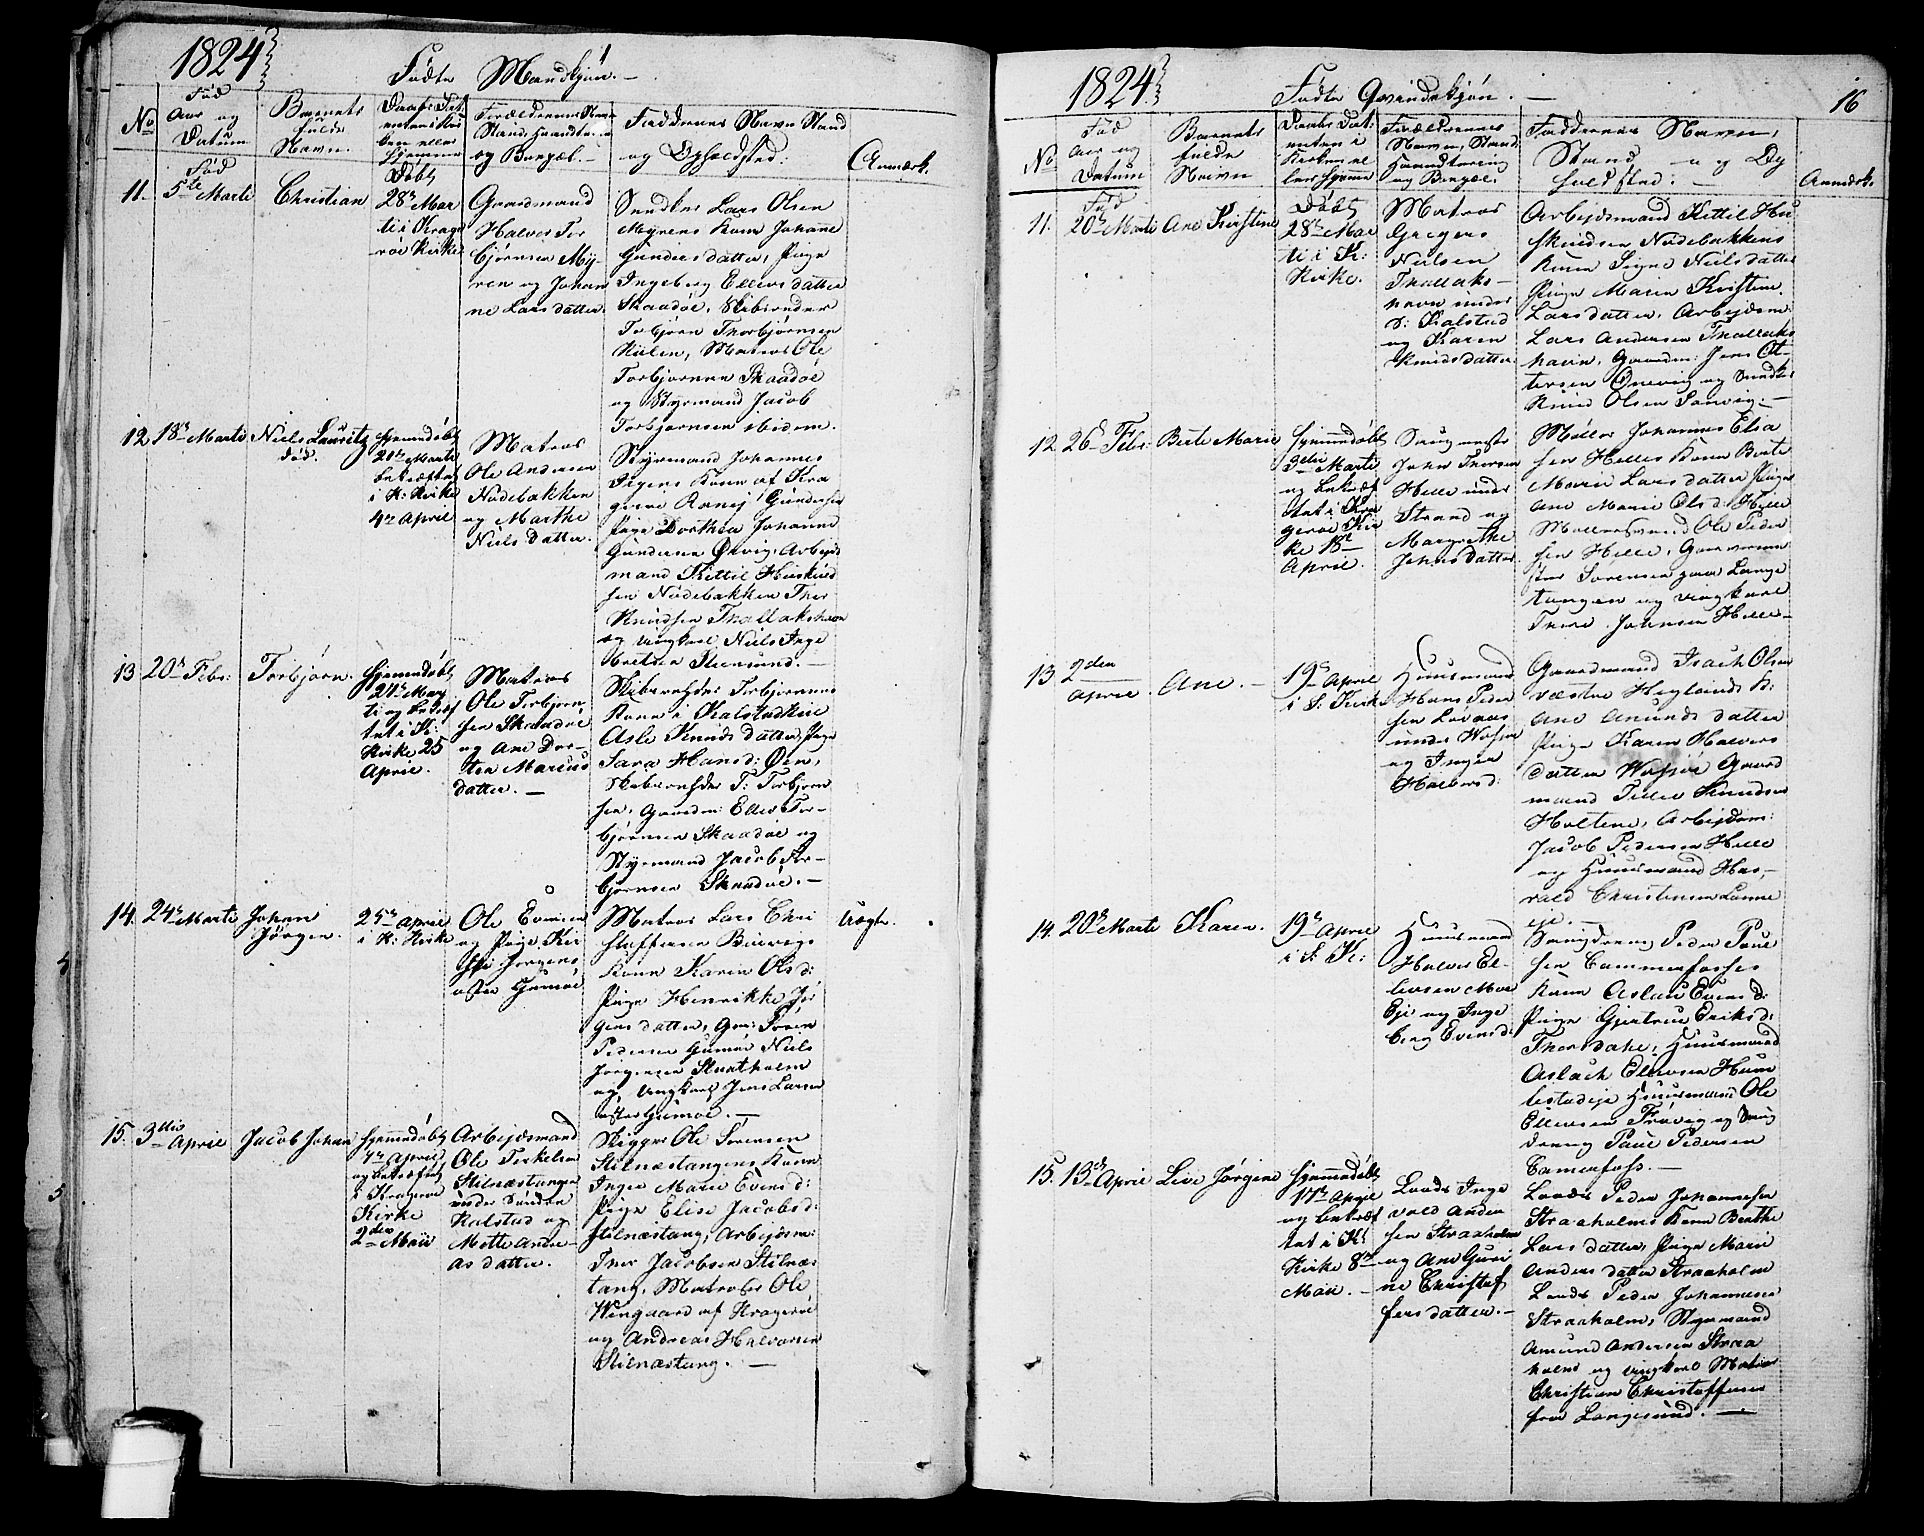 1824
Fødte Mandkjøn. —
No
Fød
Aar og
Datum
Barnets
fulde
Navn.
Daabs Dat:
enten i Kir
ken eller
hjemme
Forældrenes Navn
Stand, Haandtering
og Bopæl. —
Faddernes Navn Stand
og Opholdsted:
Anmærk.
Fød
Døbt
11.
5te Marti
Christian
28de Mar
ti i Krage
røe Kirke
Gaardmand
Halvor Tor
bjørnsen My-
ren og Johan
ne Larsdatter.
Lars Olsen
Myrens Kone Johane
Gundersdatter, Pige
Ingeborg Ellevsdatter
Skaadøe, Skibsreder
Torbjørn Thorbjørnsen
Kiilen, Matros Ole
Torbjørnsen Skaadøe
og Styrmand Jacob
Torbjørnsen ibidem.
12
18de Marti
Niels Lauritz
død.
hjemmedøbt
20de Marti
bekræftet
i K: Kirke
4de April
Matros
Ole Andersen
Nødebakken
og Marthe
Nielsdatter.
Styrmand Johannes
Kone af Kra
gerøe
Pige Dorthea Johanne
Øevig, Arbeids
mand Kittil Huskuld
sen Nødebakken Thor
Knudsen Thallakshavn
og Ungkarl Niels Inge
bretsen Steensund. —
13
20de Febr:
Torbjørn.
hjemmedøbt
27de Mar
ti og bekræf
tet i K:
Kirke 25
April.
Matros
Ole Torbjørn
sen Skaadøe
og Ane Dor-
thea Marcus
datter. —
Skibsrehder Torbjørnsens
Kone i Kalstadkiil
Asle Knudsdatter, Pige
Sara Hansd: Øen,
Skibsrehder T: Torbjørn
sen, Gaardm: Ellev Tor-
bjørnsen Skaadøe og
Styrmand Jacob Tor-
bjørnsen Skaadøe. —
14.
24de Marti
Johan
Jørgen.
25de April
i K: Kirke
Ole Evensen
og Pige Kir
sti Jørgens
Gumøe
Matros Lars Chri
stoffersen
Kone Karen Olsd:
Pige Henrikke Jør
gensdatter, Gm: Søren
Pedersen Gumøe Niels
Jørgensen Skaatholm
og Ungkarl Jens Larsen
Øster Gumøe. —
Uægte.
15.
3die
April
Jacob Johan
hjemmedøbt
4de April
og bekræftet
i Kragerøe
Kirke
2den Maii
Arbejdsmand
Ole Terkelsen
Stilnæstangen
under Søndre
Kalstad og
Mette Andre-
as datter.
Skipper Ole Sørensen
Stilnæstangens Kone
Inger Marie Evensd:
Pige Elise Jacobsd:
Stilnæstang, Arbejdsm:
Iver Jacobsen Stilnæs
tang, Matroser Ole
Wingaard af Kragerøe
og Andreas Halvorsen
Stilnæstang. —
1824
Fødte Qvindekjøn. —
16
No
Fød
Aar og
Datum
Barnets
fulde
Navn
Daabs Dat:
enten i
Kirken el
ler hjemme
Forældrenes
Navn, Stand,
Haandtering
og Bopæl.
Faddernes Navn,
Stand — og Op
holdsted: —
Anmærk.
Fød
Døbt
11.
20de Marti
Ane Kirstine
28de Mar
ti i K:
Kirke.
Matros
Gregers
Nielsen
Thallaks-
havn under
S: Kalstad
og Karen
Knudsdatter.
Arbejdsmand Kittil Hu
skuldsen Nødebakkens
Kone Signe Nielsdatter
Pige Maren Kirstine
Larsdatter, Arbejdsm:
Lars Andersen Thallaks
havn, Gaardm: Jens Ot-
tersen Øvevig og Snedker
Knud Olsen Sanvig. —
12
26de Febr:
Berte Marie
hjemmedøbt
3die Marti
og bekræf
tet i Kra
gerøe Kir
ke 18de
April.
John Thorsen
Helle under
Strand og
Margrethe
Johnsdatter.
Møller Johannes Elia
sen Helles Kone Berte
Marie Larsdatter Piger
Ane Marie Olsd: Helle
Møllersvend Ole Peder
sen Helle,
Sørensen paa Lange
tangen og Ungkarl
Thore Johnsen Helle —
13
2den
April
Ane. —
19de April
i S: Kirke
Huusmand
Hans Peder
sen Løvaas
under
og Inger
Halvorsd:
Gaardmand Isach Olsen
Væstre Heglands K:
Ane Amunds datter
Pige Karen Halvors
datter Gaard
mand Peder Knudsen
Holtene, Arbejdsm:
Jacob Pedersen Helle
og Huusmand Har-
vald Christensen Lønne
eje. —
14.
20de Marti
Karen.
19de April
i S: K:
Huusmand
Halvor El-
levsen Moe
Eje og Inge
borg Evensd:
Peder Paul
sen Cammerfosses
Kone Aslau Evensd:
Pige Gjertrue Eriksd:
Thorsdahl, Huusmænd
Aslach Ellevsen
Huusmand Ole
Ellevsen Frøvig og
dreng Paul Pedersen
Camerfoss. —
15.
13de April
Live Jørgine
hjemmedøbt
17de April
og bekræf
tet i K:
Kirke 8de
Maii. —
Loods Inge
vald Ander
sen Straaholm
og Ane Guri
ne Christof
fersdatter. —
Loods Peder Johannesen
Straaholms Kone Berthe
Larsdatter, Pige Marie
Andersdatter Straaholm
Loods Peder Johannesen
Straaholm, Styrmand
Amund Andersen Straa
holm og Ungkarl Matros
Christian Christoffersen
fra Langesund. —